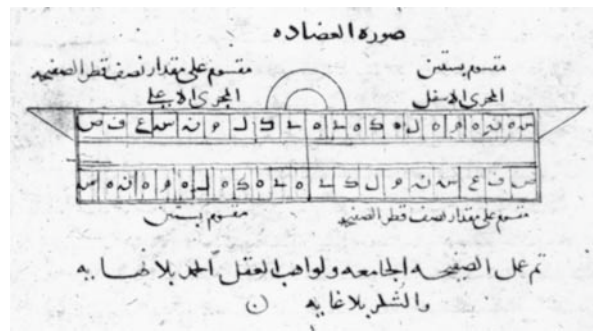 صورة العضاده
مقسوم بستين مقسوم على مقدار نصف قطر الصفيحه
المجرى الاسفل المجرى الاعلى
مقسوم على مقدار نصف قطر الصفيحه مقسوم بستين
تم عمل الصفيحه الجامعه ولواهب العقل الحمد بلا نهايه
والشكر بلا غايه